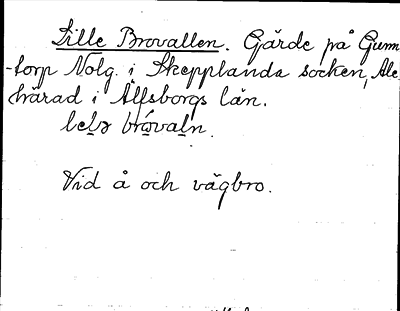 Lille Brovallen. Gärde på Gunn
-torp Nolg. i Skepplanda socken, Ale
härad i Älfsborgs län.
brovaln.
Vid å och vägbro.